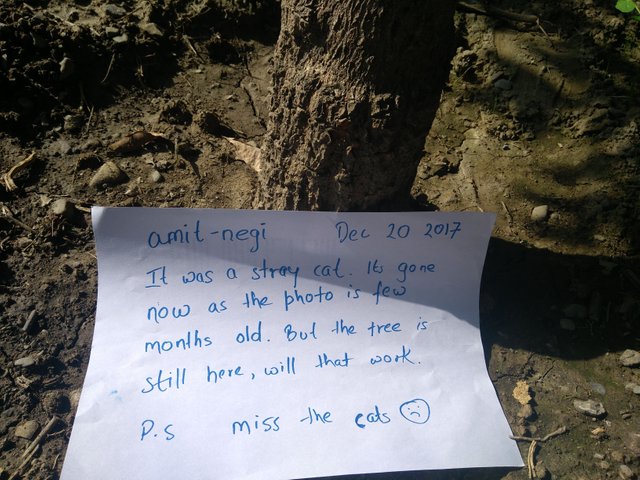 amit-negi Dec 20 2017
It was a stray cat. Its gone
now as the photo is few
months old. But the tree is
still here, will that work.
P.S miss the cats